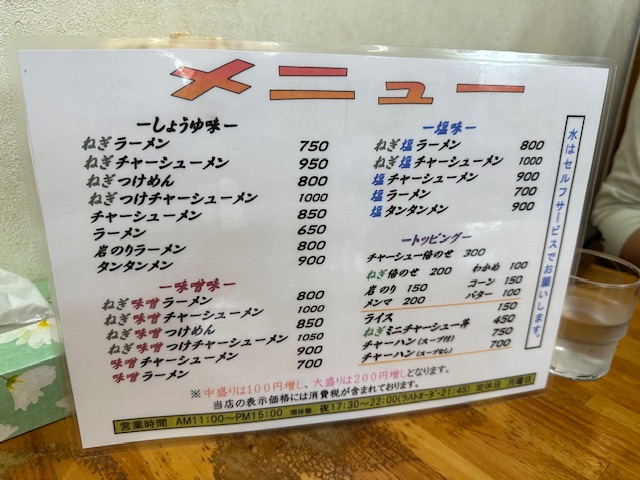 メニュー
ーしょうゆ味ー
ねぎラーメン 750
ねぎチャーシューメン 950
ねぎつけめん 800
ねぎつけチャーシューメン 1000
チャーシューメン 850
ラーメン 650
岩のりラーメン 800
タンタンメン 900
ー味噌味ー
ねぎ味噌ラーメン 800
ねぎ味噌チャーシューメン 1000
ねぎ味噌つけめん 850
ねぎ味噌つけチャーシューメン 1050
味噌チャーシューメン 900
味噌ラーメン 700
ー塩味ー
ねぎ塩ラーメン 800
ねぎ塩チャーシューメン 1000
塩チャーシューメン 900
塩ラーメン 700
塩タンタンメン 900
ートッピングー
チャーシュー倍のせ 300
ねぎ倍のせ 200 わかめ 100
岩のり 150 コーン 150
メンマ 200 バター 100
ライス 150
ねぎミニチャーシュー丼 450
チャーハン(スープ付) 750
チャーハン(スープなし) 700
水はセルフサービスでお願いします。
※中盛りは100円増し、大盛りは200円増しとなります。
当店の表示価格には消費税が含まれております。
営業時間 AM11:00～PM15:00 夜17:30～22:00(ラストオーダー21:45) 定休日 月曜日